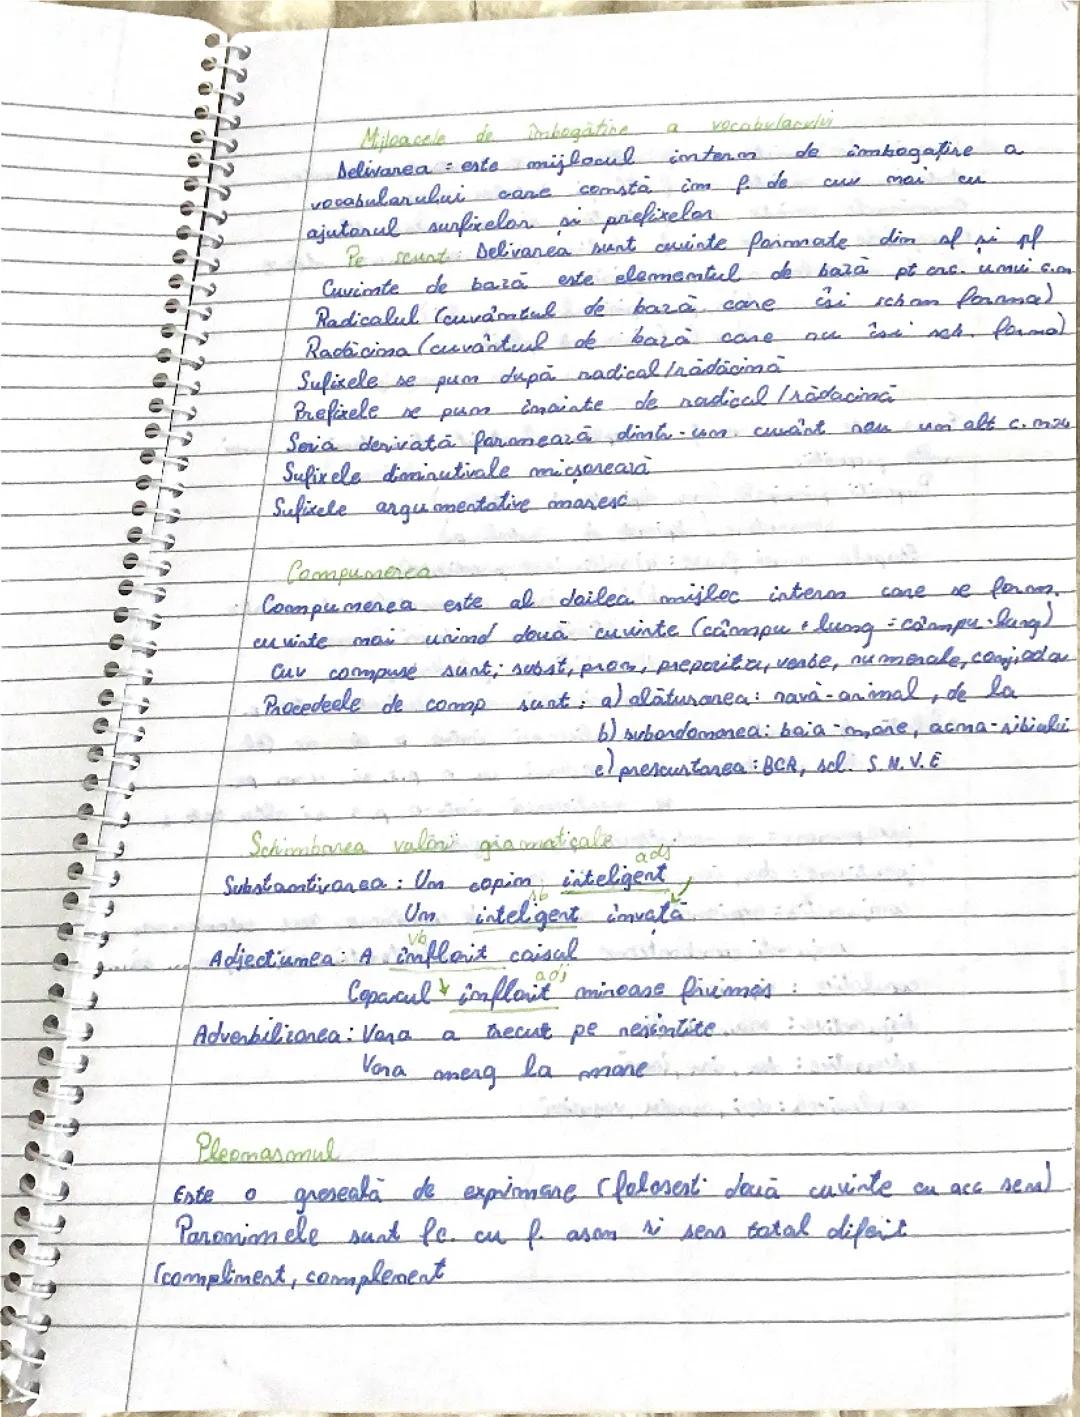 Mijloacele de îmbogățire a vocabularului
Delivarea = este mijlocul intern de îmbogațire a
vocabularului care constă în f. de cuv mai cu
ajutorul surfixelor si prefixelor
Pe scurt: Delivarea sunt cuvinte formate din sf si pf
Cuvinte de bază este elementul de bază pt crc. unui c.m
Radicalul (cuvântul de bază care îsi schm forma)
Radăcina (cuvântul de bază care nu îsi sch. forma)
Sufixele se pun după radical/rădăcină
Prefixele se pun înainte de radical/rădacină
Seria derivată formează dintr-un cuvânt nou un alt c.
Sufixele diminutivale micșorează
Sufixele argumentative maresc
Compunerea
Compunerea este al doilea mijloc intern care se form.
cuvinte mai unind două cuvinte (câmpu + lung = câmpu-lung)
Cuv compuse sunt; subst, pron, prepoziția, verbe, numerale, conj,
Procedeele de comp sunt: a) alăturarea: navă-animal, de la
b) subordonarea: baia-mare, acna-sibiului
c) prescurtarea: BCR, scl. S.N.V.E
Schimbarea valorii gramaticale
adj
Substantivarea: Un copin inteligent
sb
Un inteligent învață
vb
Adjectiunea: A înflorit caisul
adj
Copacul înflorit miroase frumos
Adverbilizarea: Vara a trecut pe nesimtite
Vara merg la mare
Pleonasmul
Este o greseală de exprimare (folosesti două cuvinte cu acc sens)
Paronimele sunt fc. cu f. asem si sens total diferit
(compliment, complement